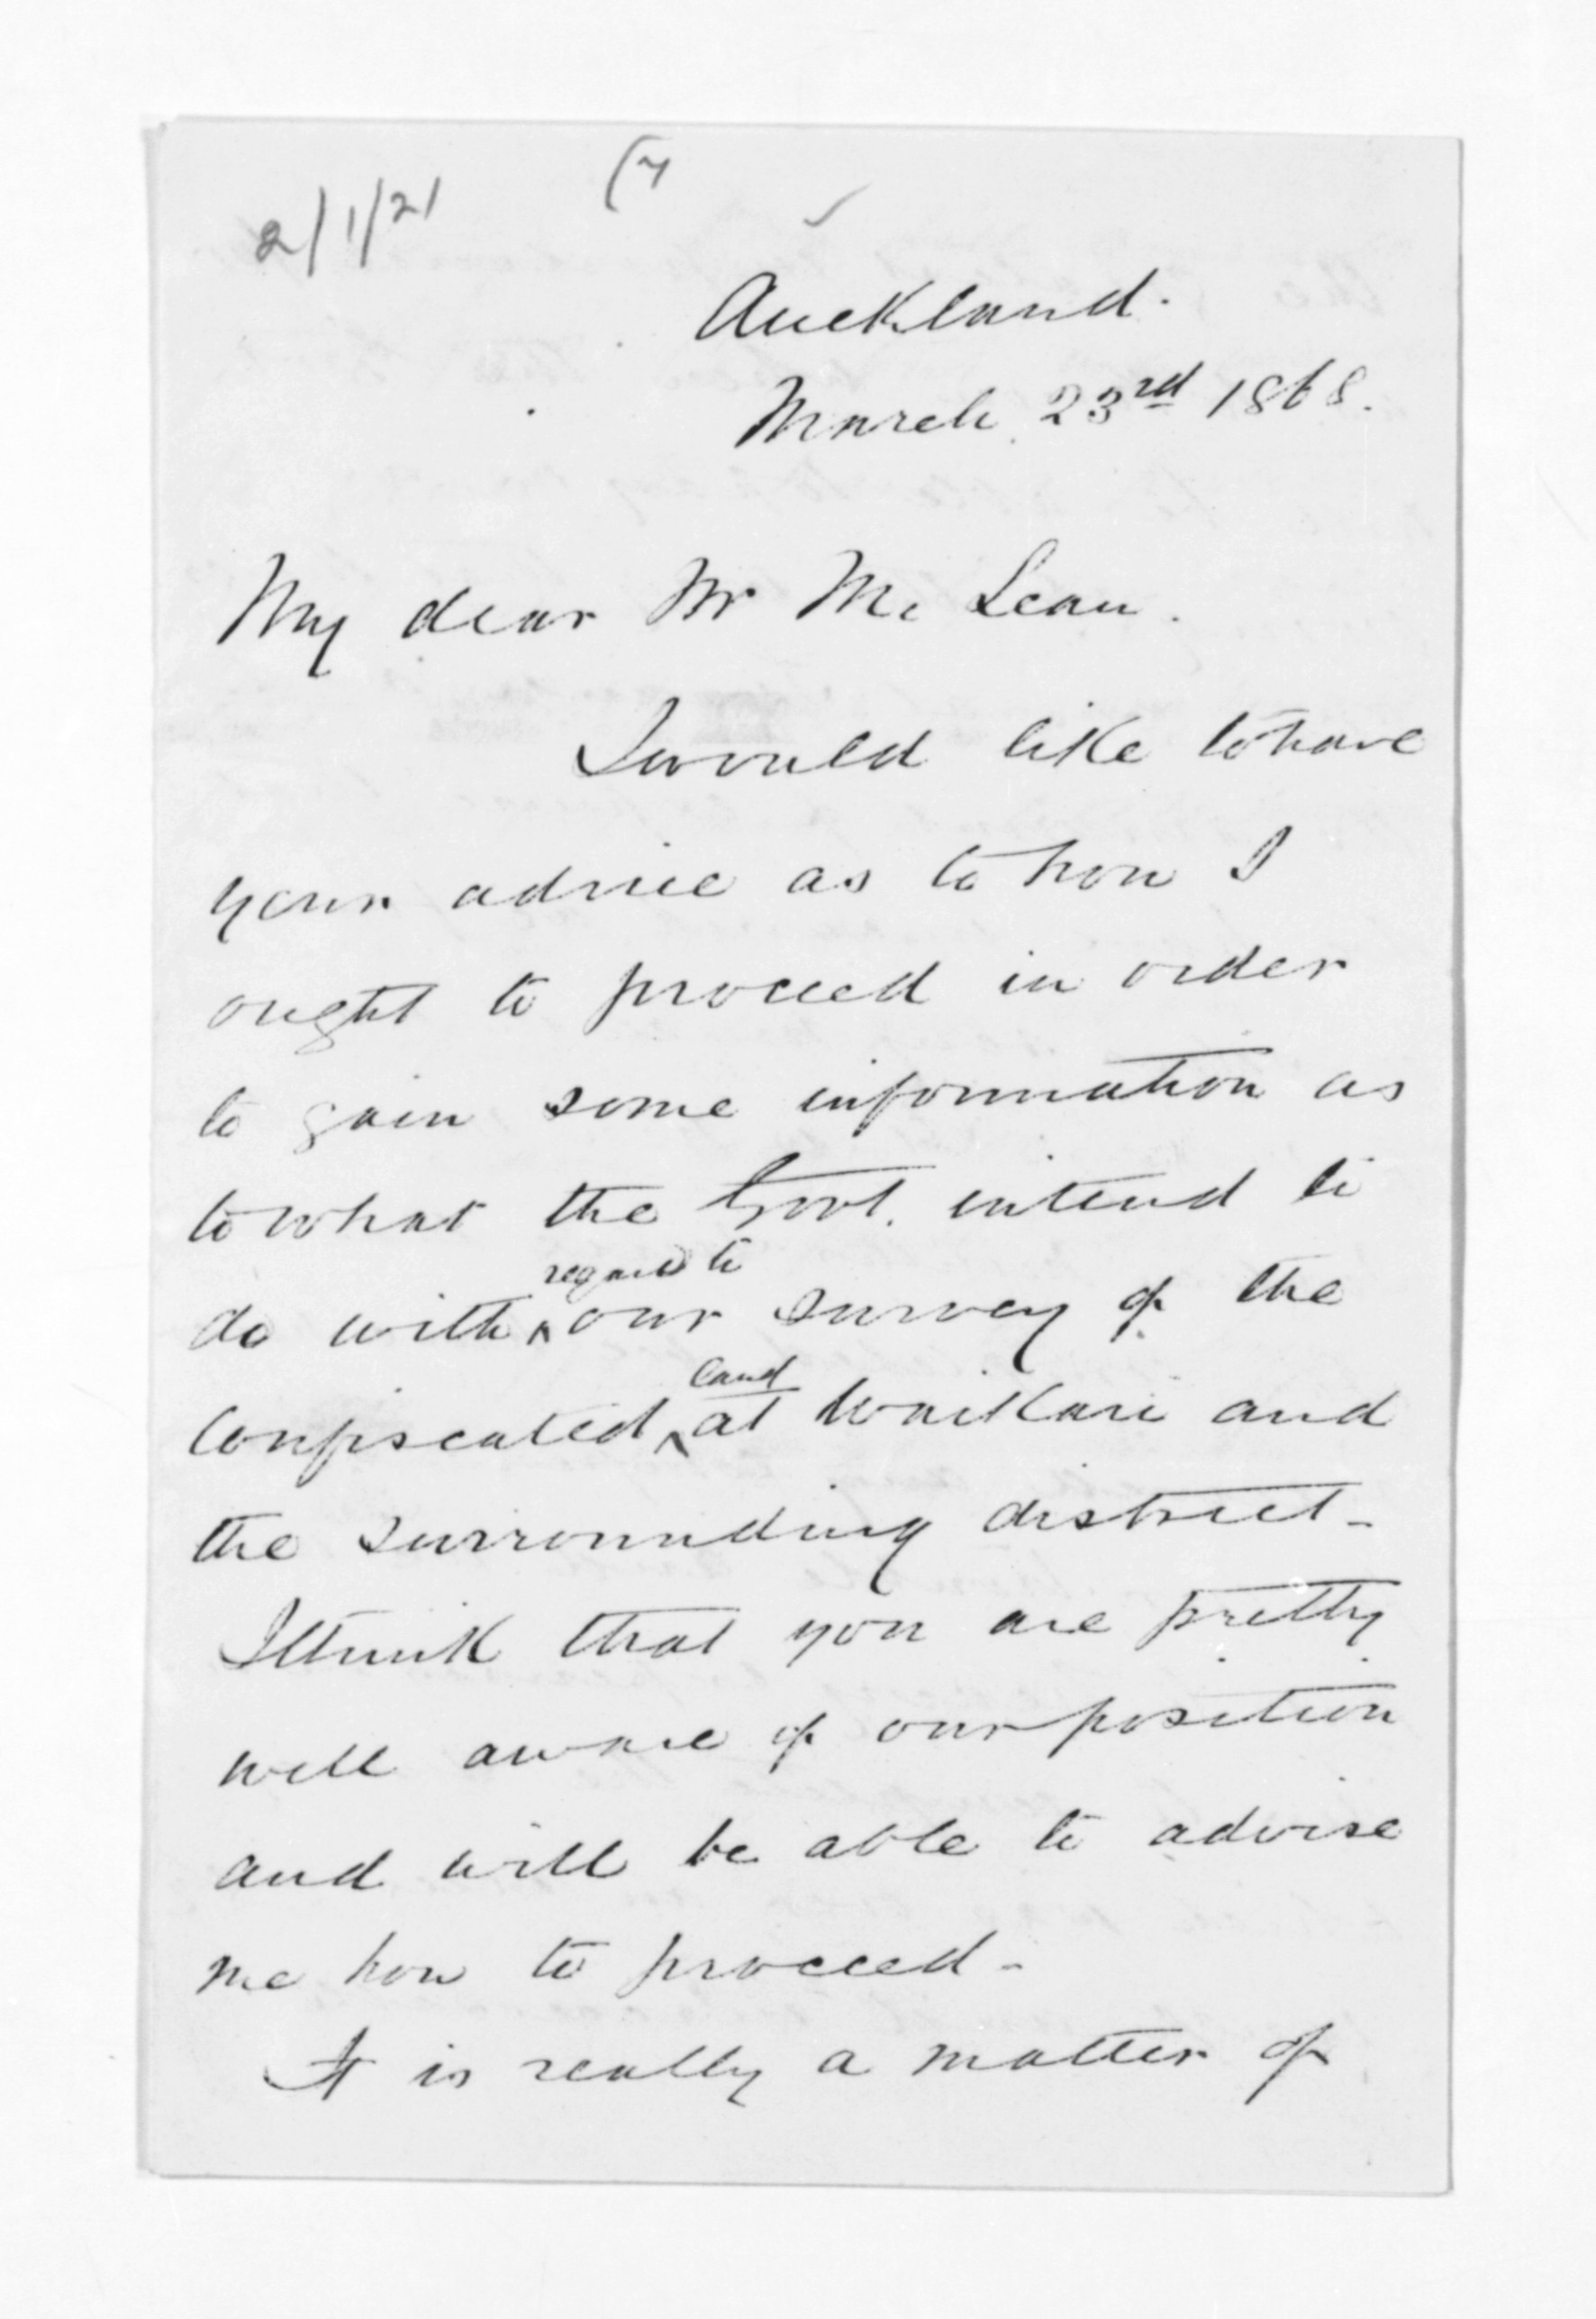 2/1/21
Auckland.
March 23rd 1868.
My dear Mr Mc Lean.
I would like to have
your advice as to how I
ought to proceed in order
to gain some information as
to what the Govt. intend to
regard to
do with our survey of the
land
Confiscated at Waikari and
the surrounding district -
I think that you are pretty
well aware of our position
and will be able to advise
me how to proceed -
It is really a matter of